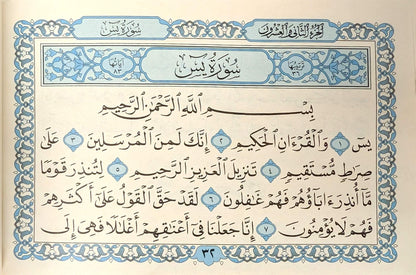 الجزء الثانى والعشرون سورة يس
ترتيبها ٣٦ سُورَةُ يسٓ آياتها ٨٣
بِسْمِ ٱللَّهِ ٱلرَّحْمَٰنِ ٱلرَّحِيمِ
يسٓ ١ وَٱلْقُرْءَانِ ٱلْحَكِيمِ ٢ إِنَّكَ لَمِنَ ٱلْمُرْسَلِينَ ٣ عَلَىٰ
صِرَٰطٍ مُّسْتَقِيمٍ ٤ تَنزِيلَ ٱلْعَزِيزِ ٱلرَّحِيمِ ٥ لِتُنذِرَ قَوْمًا
مَّآ أُنذِرَ ءَابَآؤُهُمْ فَهُمْ غَٰفِلُونَ ٦ لَقَدْ حَقَّ ٱلْقَوْلُ عَلَىٰٓ أَكْثَرِهِمْ
فَهُمْ لَا يُؤْمِنُونَ ٧ إِنَّا جَعَلْنَا فِىٓ أَعْنَٰقِهِمْ أَغْلَٰلًا فَهِىَ إِلَى
٣٢